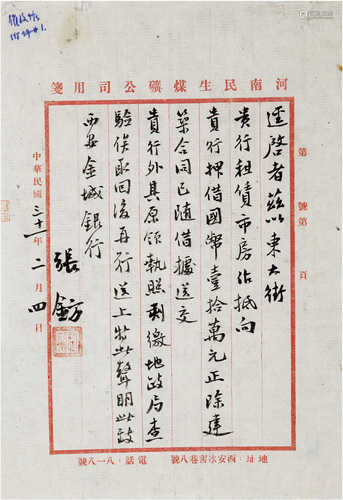 河南民生煤礦公司用箋
第 號第 頁
逕啓者茲以東大街
貴行租賃市房佔抵向
貴行押借國幣壹拾萬元正除建
築合同已隨借據送交
貴行外其原領執照剩繳地政局查
驗俟取回後再行送上特此聲明此致
西安金城銀行
張鈁
中華民國三十一年二月四日
地址：西安冰窖巷八號 電話：八一八號